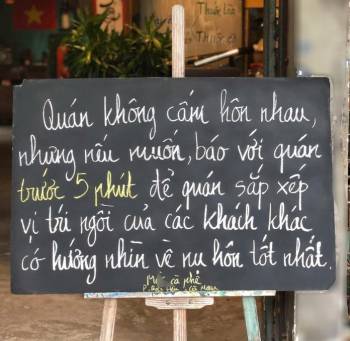 Quán không cấm hôn nhau,
nhưng nếu muốn, báo với quán
trước 5 phút để quán sắp xếp
vị trí ngồi của các khách khác
có hướng nhìn về nụ hôn tốt nhất.
cà phê